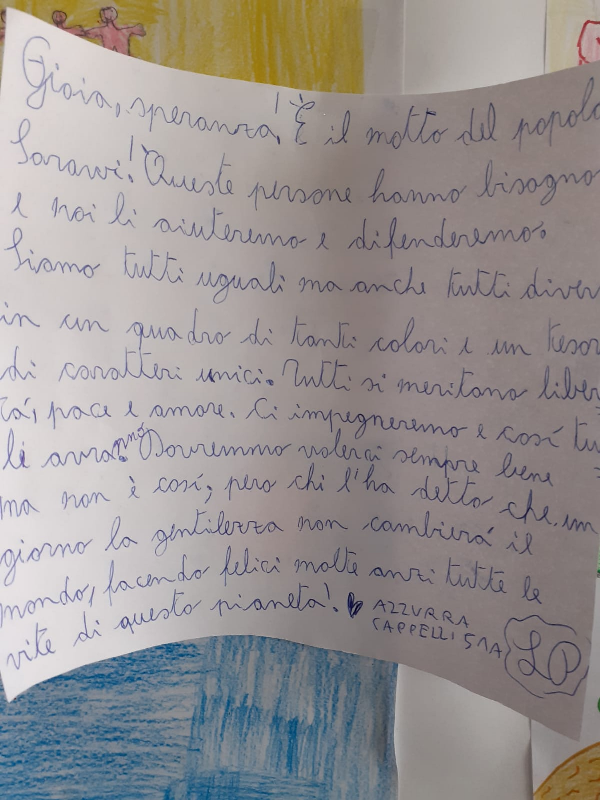 Gioia, speranza! È il motto del popolo
Sarawi! Queste persone hanno bisogno
e noi li aiuteremo e difenderemo.
Siamo tutti uguali ma anche tutti diver
in un quadro di tanti colori e un tesor
di caratteri unici. Tutti si meritano liber
tá, pace e amore. Ci impegneremo e cosí tu
li avranno. Dovremmo volerci sempre bene
ma non è cosí; pero chi l'ha detto che un
giorno la gentilezza non cambierá il
mondo, facendo felici molte anzi tutte le
vite di questo pianeta!
AZZURRA
CAPPELLI 5^A